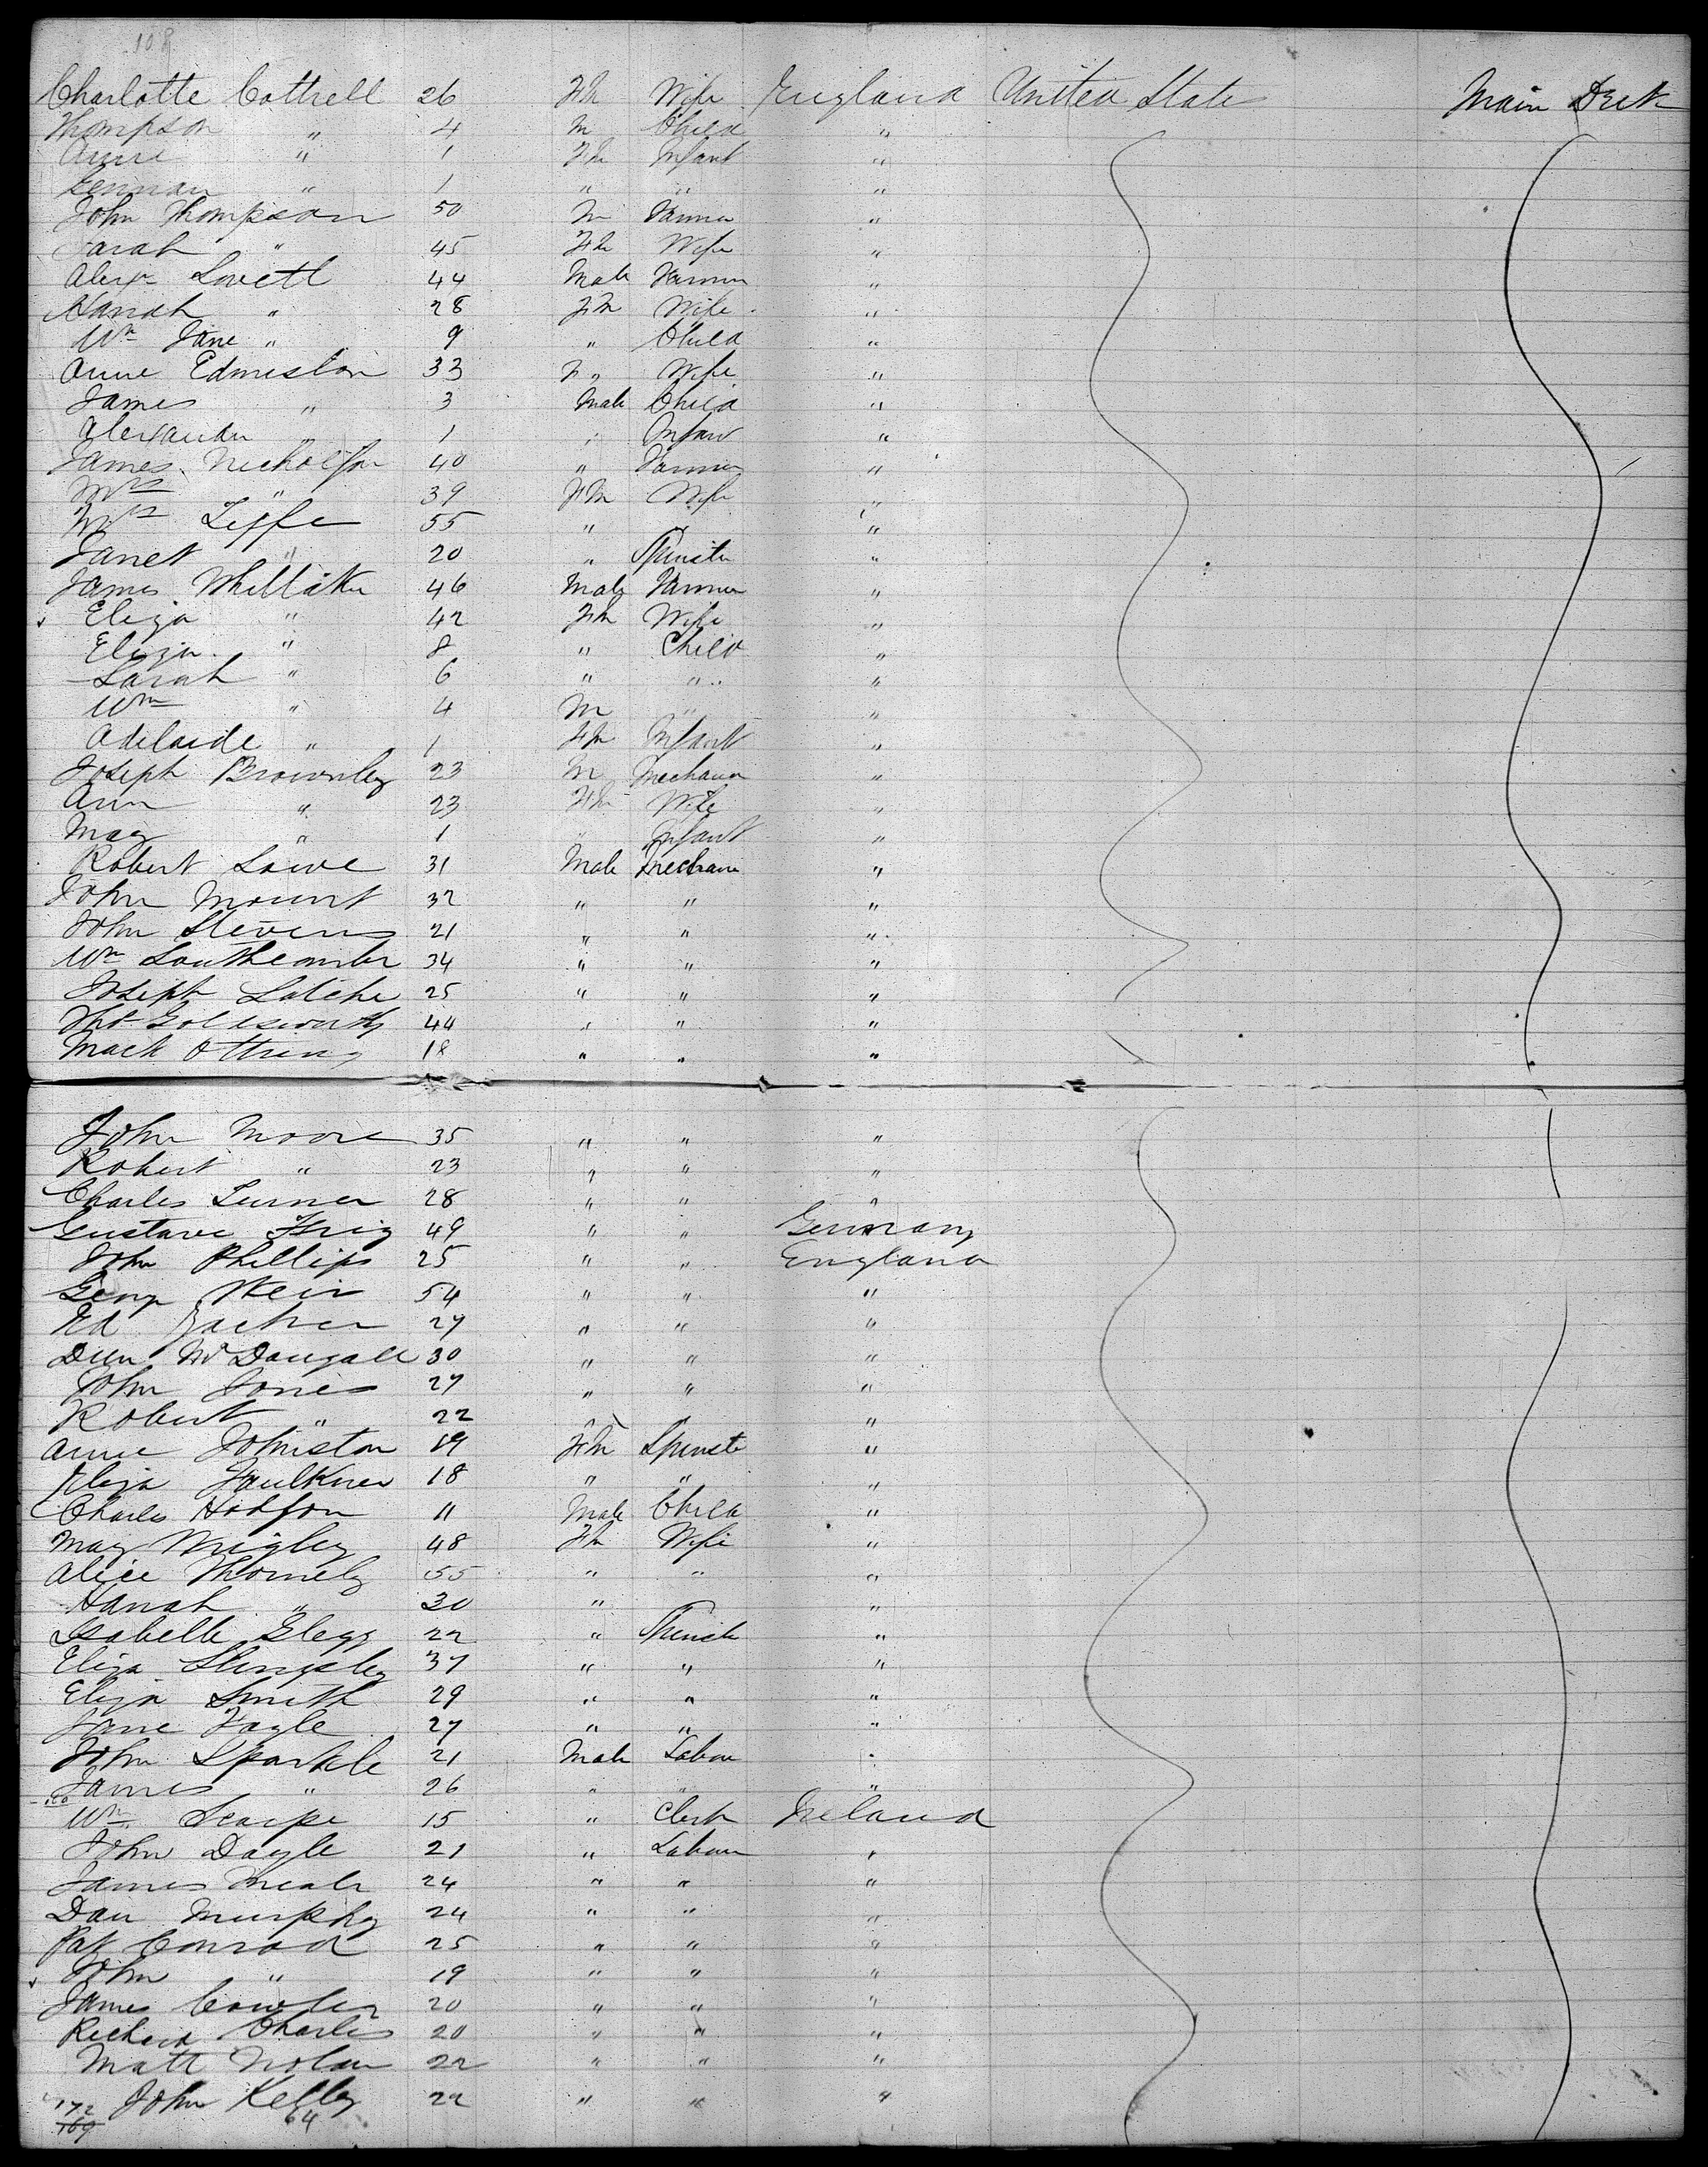 108
Charlotte Cottrell 26 Fm Wife England United States Main Deck
Thompson " 4 m Child "
Anne " 1 Fm Infant "
" 1 " " "
John Thompson 50 m Farmer "
Sarah " 45 Fm Wife "
Alexr Lovett 44 Male Farmer "
Hanah " 28 Fm Wife "
Wm Jane " 9 " Child "
Anne Edmiston 33 F" Wife "
James " 3 Male Child "
Alexander " 1 " Infant "
James Nicholson 40 " Farmer "
Mrs " 39 Fm Wife "
Mrs 55 " " "
Janet " 20 " Spinster "
James Whittaker 46 Male Farmer "
Eliza " 42 Fm Wife "
Eliza " 8 " Child "
Sarah " 6 " " "
Wm " 4 M " "
Adelaide " 1 Fm Infant "
Joseph Brownley 23 m Mechanic "
Ann " 23 Fm Wife "
May " 1 " Infant "
Robert Lowe 31 Male Mechanic "
John Mount 32 " " "
John Stevens 21 " " "
Wm Southcombe 34 " " "
Joseph 25 " " "
Thos Goldsworthy 44 " " "
Mack 18 " " "
John Moore 35 " " "
Robert " 23 " " "
Charles Turner 28 " " "
Gustave 49 " " Germany
John Phillips 25 " " England
George Weir 54 " " "
Ed 29 " " "
McDougall 30 " " "
John Jones 27 " " "
Robert " 22 " " "
Anne Johnston 19 Fm Spinster "
Eliza Faulkner 18 " " "
Charles Hodson 11 Male Child "
May Wrigley 48 Fm Wife "
Alice Thornely 55 " " "
Hanah " 30 " "
Isabelle Glegg 22 " Spinster "
Eliza Slingsley 37 " " "
Eliza Smith 29 " " "
Jane Fayle 27 " " "
John Sparkle 21 Male Labour "
James " 26 " " "
Wm Scarpe 15 " Clerk Ireland
John Doyle 21 " Labour "
James 24 " " "
Dan Murphy 24 " " "
Pat Conrad 25 " " "
John " 19 " " "
James Cowley 20 " " "
Richard Charles 20 " " "
Matt Nolan 22 " " "
172 John Kelly 22 " " "
169 64